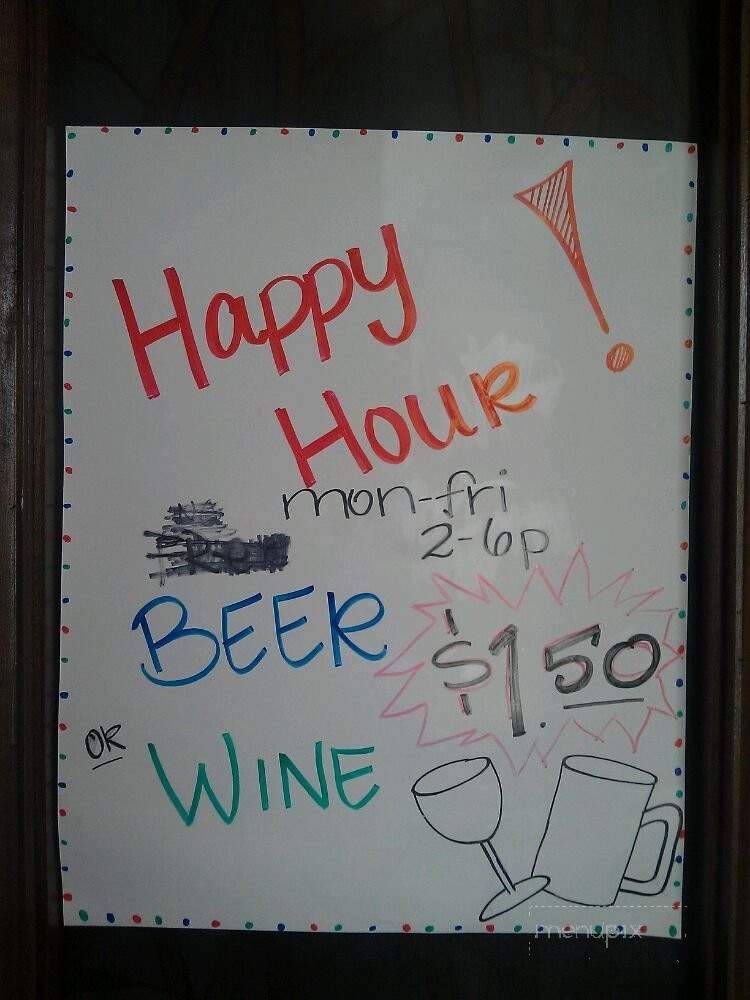 Happy
Hour!
mon-fri
2-6p
BEER
$1.50
OR
WINE
menupix